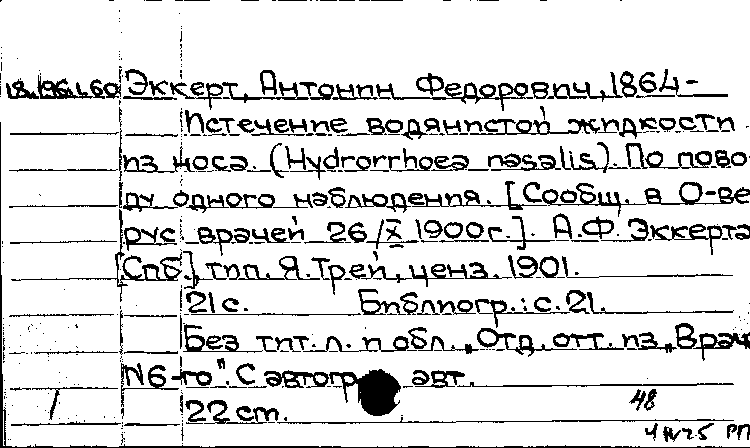 18.196.1.60 Эккерт, Антонин Федорович, 1864-
Истечение водянистой жидкости
из носа. (Hydrorrhoea nasalis). По пово
ду одного наблюдения. [Сообщ. в О-ве
рус врачей 26/X 1900г.]. А.Ф. Эккерта
[Спб.], тип. Я. Трей, ценз. 1901.
21 с. Библиогр.: с. 21.
Без тит. л. и обл. „Отд. отт. из „Врач
N6-го". С автогр. авт.
22 cm. 48
РП